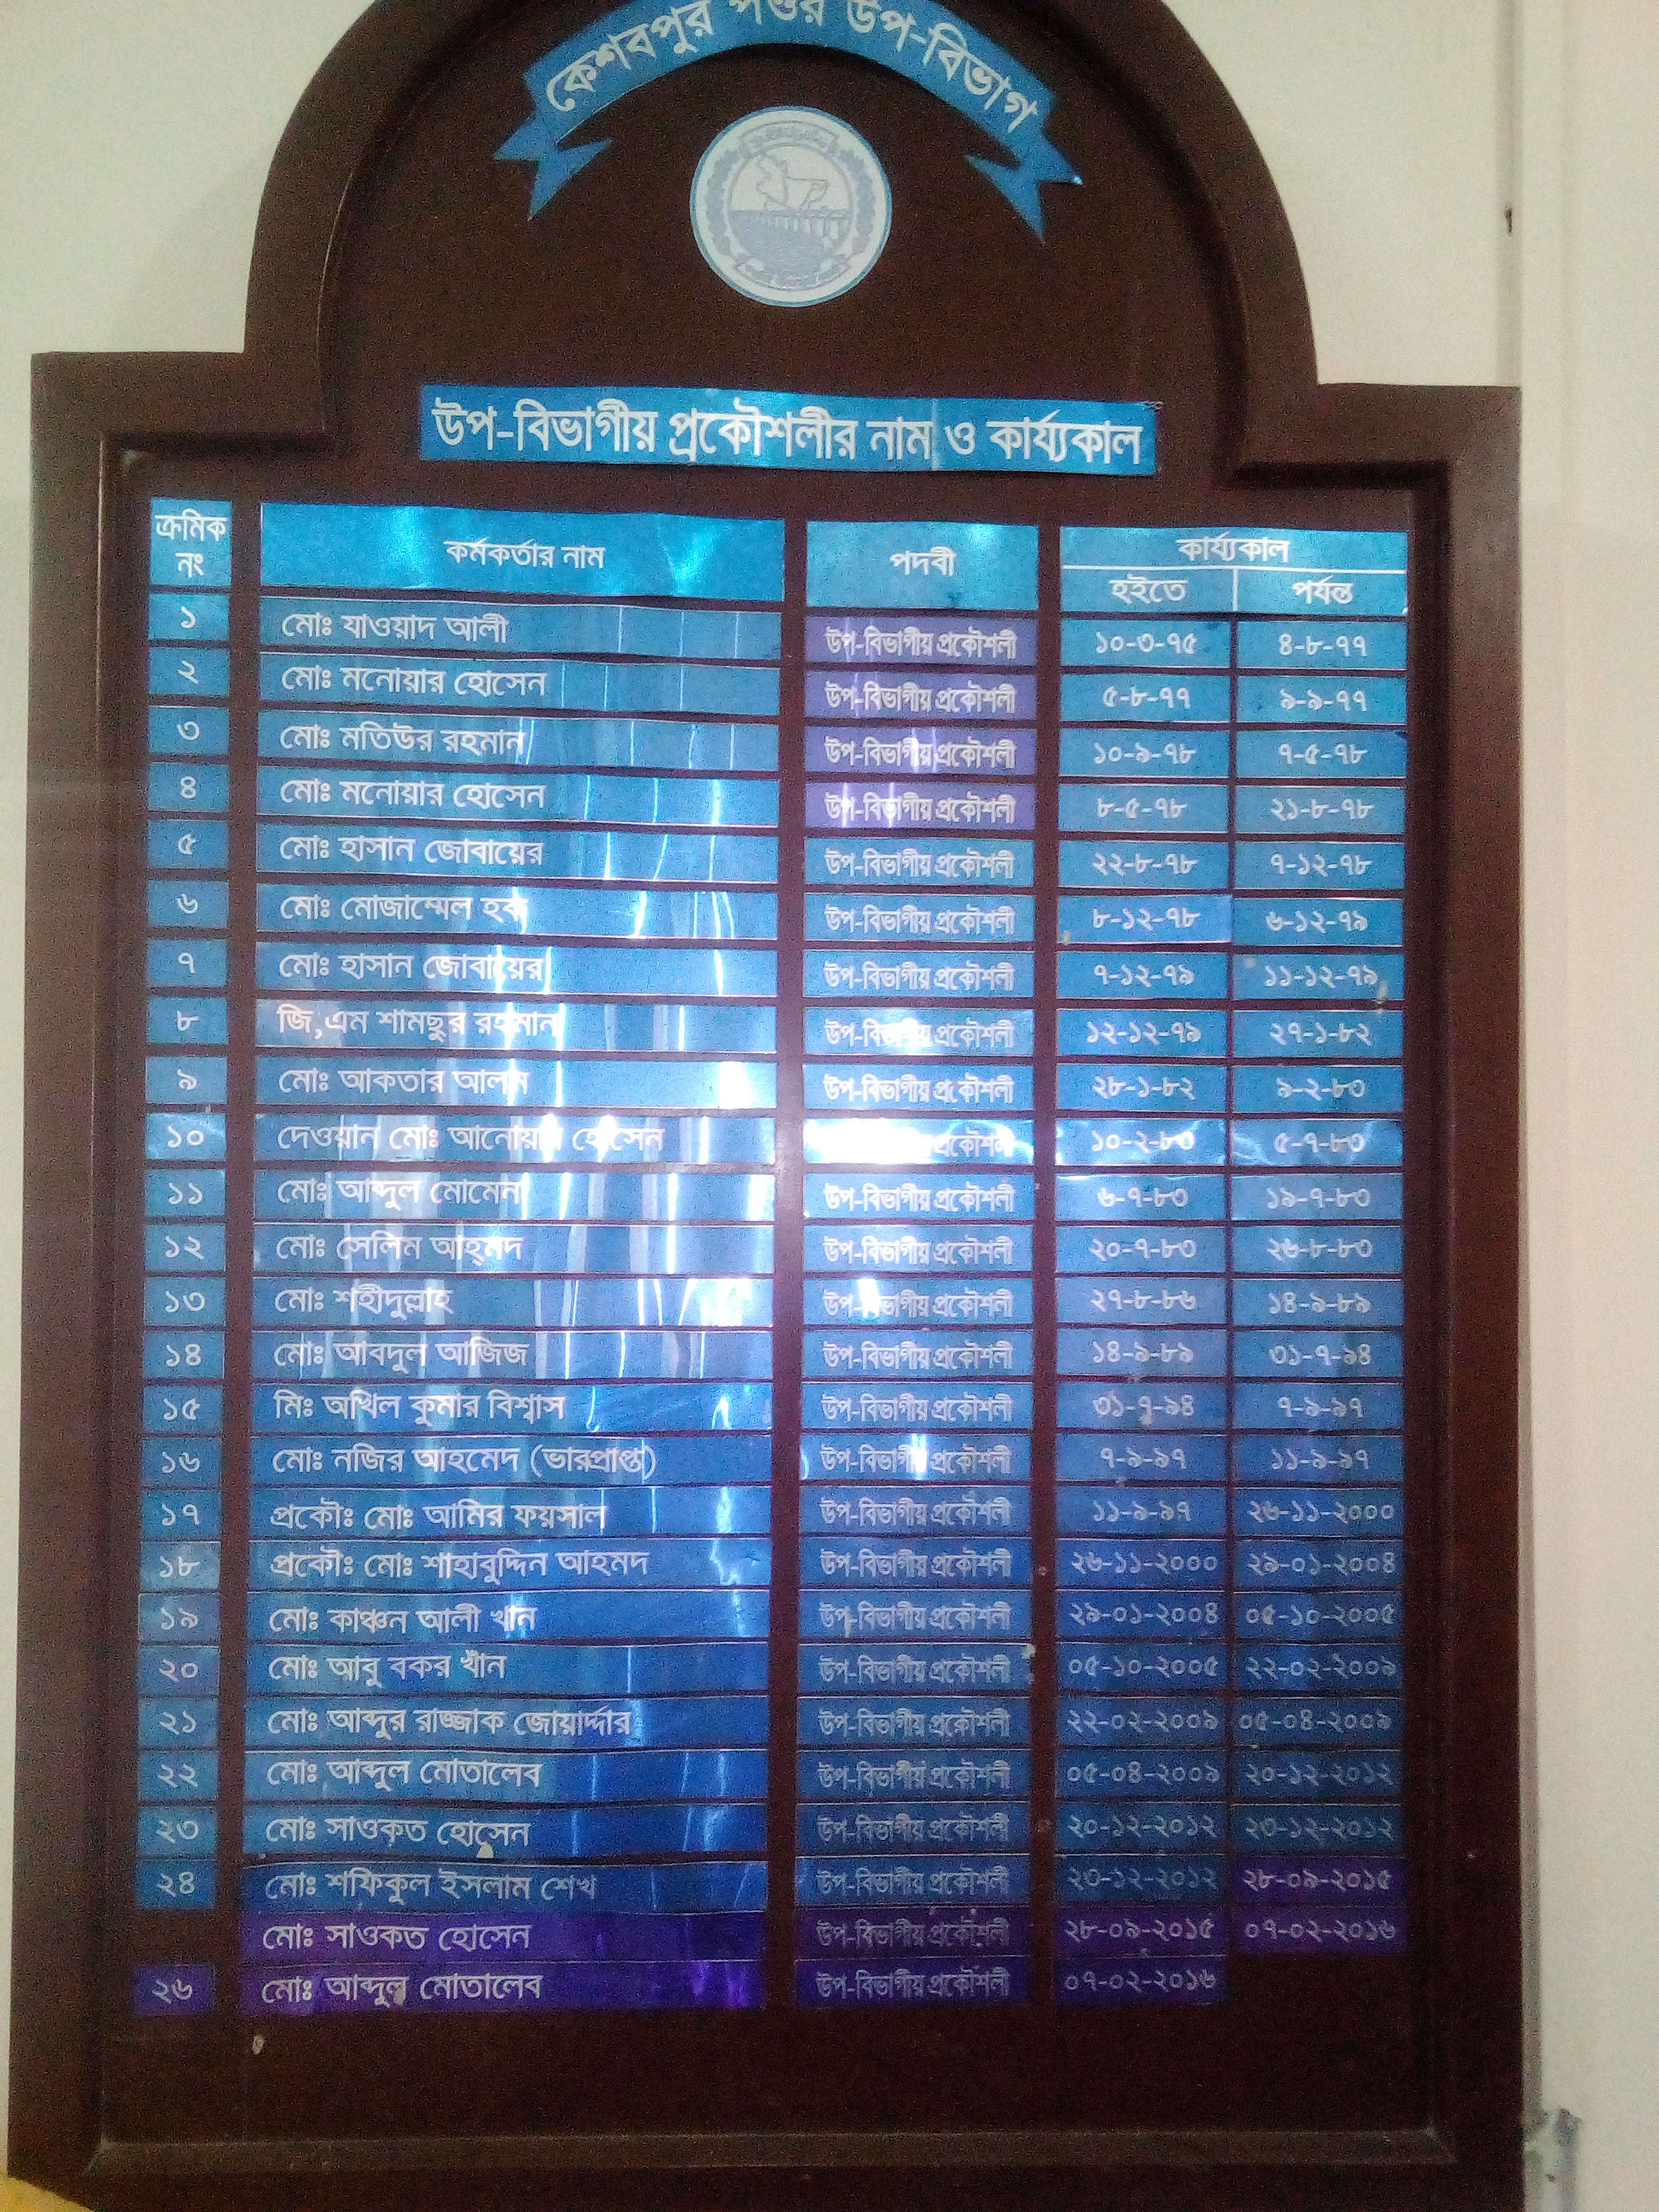 কেশবপুর পওর উপ-বিভাগ
উপ-বিভাগীয় প্রকৌশলীর নাম ও কার্য্যকাল
ক্রমিক নং কর্মকর্তার নাম পদবী কার্য্যকাল
হইতে পর্যন্ত
১ মোঃ যাওয়াদ আলী উপ-বিভাগীয় প্রকৌশলী ১০-৩-৭৫ ৪-৮-৭৭
২ মোঃ মনোয়ার হোসেন উপ-বিভাগীয় প্রকৌশলী ৫-৮-৭৭ ৯-৯-৭৭
৩ মোঃ মতিউর রহমান উপ-বিভাগীয় প্রকৌশলী ১০-৯-৭৮ ৭-৫-৭৮
৪ মোঃ মনোয়ার হোসেন উপ-বিভাগীয় প্রকৌশলী ৮-৫-৭৮ ২১-৮-৭৮
৫ মোঃ হাসান জোবায়ের উপ-বিভাগীয় প্রকৌশলী ২২-৮-৭৮ ৭-১২-৭৮
৬ মোঃ মোজাম্মেল হক উপ-বিভাগীয় প্রকৌশলী ৮-১২-৭৮ ৬-১২-৭৯
৭ মোঃ হাসান জোবায়ের উপ-বিভাগীয় প্রকৌশলী ৭-১২-৭৯ ১১-১২-৭৯
৮ জি,এম শামছুর রহমান উপ-বিভাগীয় প্রকৌশলী ১২-১২-৭৯ ২৭-১-৮২
৯ মোঃ আকতার আলম উপ-বিভাগীয় প্রকৌশলী ২৮-১-৮২ ৯-২-৮৩
১০ দেওয়ান মোঃ আনোয়ার হোসেন প্রকৌশলী ১০-২-৮৩ ৫-৭-৮৩
১১ মোঃ আব্দুল মোমেন উপ-বিভাগীয় প্রকৌশলী ৬-৭-৮৩ ১৯-৭-৮৩
১২ মোঃ সেলিম আহমদ উপ-বিভাগীয় প্রকৌশলী ২০-৭-৮৩ ২৬-৮-৮৩
১৩ মোঃ শহীদুল্লাহ উপ-বিভাগীয় প্রকৌশলী ২৭-৮-৮৬ ১৪-৯-৮৯
১৪ মোঃ আবদুল আজিজ উপ-বিভাগীয় প্রকৌশলী ১৪-৯-৮৯ ৩১-৭-৯৪
১৫ মিঃ অখিল কুমার বিশ্বাস উপ-বিভাগীয় প্রকৌশলী ৩১-৭-৯৪ ৭-৯-৯৭
১৬ মোঃ নজির আহমেদ (ভারপ্রাপ্ত) উপ-বিভাগীয় প্রকৌশলী ৭-৯-৯৭ ১১-৯-৯৭
১৭ প্রকৌঃ মোঃ আমির ফয়সাল উপ-বিভাগীয় প্রকৌশলী ১১-৯-৯৭ ২৬-১১-২০০০
১৮ প্রকৌঃ মোঃ শাহাবুদ্দিন আহমদ উপ-বিভাগীয় প্রকৌশলী ২৬-১১-২০০০ ২৯-০১-২০০৪
১৯ মোঃ কাঞ্চন আলী খান উপ-বিভাগীয় প্রকৌশলী ২৯-০১-২০০৪ ০৫-১০-২০০৫
২০ মোঃ আবু বকর খাঁন উপ-বিভাগীয় প্রকৌশলী ০৫-১০-২০০৫ ২২-০২-২০০৯
২১ মোঃ আব্দুর রাজ্জাক জোয়ার্দ্দার উপ-বিভাগীয় প্রকৌশলী ২২-০২-২০০৯ ০৫-০৪-২০০৯
২২ মোঃ আব্দুল মোতালেব উপ-বিভাগীয় প্রকৌশলী ০৫-০৪-২০০৯ ২০-১২-২০১২
২৩ মোঃ সাওকত হোসেন উপ-বিভাগীয় প্রকৌশলী ২০-১২-২০১২ ২৩-১২-২০১২
২৪ মোঃ শফিকুল ইসলাম শেখ উপ-বিভাগীয় প্রকৌশলী ২৩-১২-২০১২ ২৮-০৯-২০১৫
মোঃ সাওকত হোসেন উপ-বিভাগীয় প্রকৌশলী ২৮-০৯-২০১৫ ০৭-০২-২০১৬
২৬ মোঃ আব্দুল মোতালেব উপ-বিভাগীয় প্রকৌশলী ০৭-০২-২০১৬